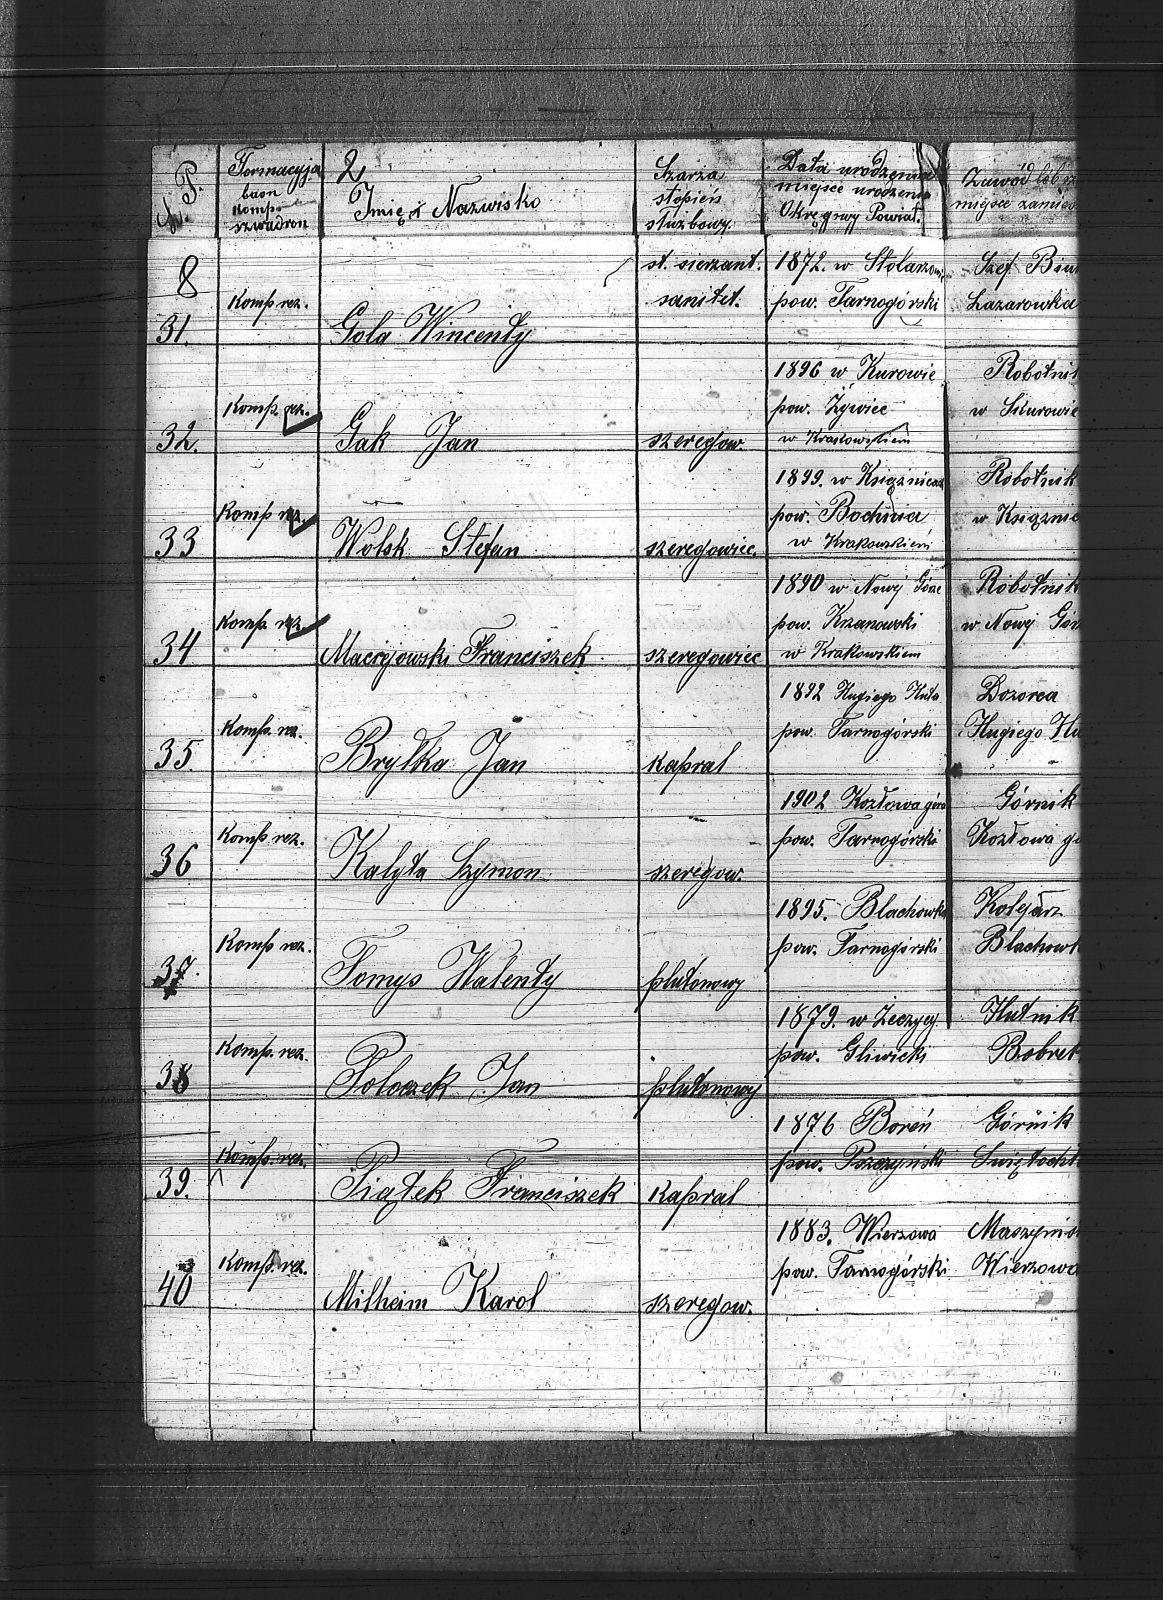 L. P.
Formacyja
baon
komp
szwadron
2
Imię i Nazwisko
Szarża
stopień
służbowy.
Data urodzenia
miejsce urodzenia
Okręgowy Powiat.
Zawód
miejsce zamies
8
31.
Komp rez.
Gola Wincenty
st. sierżant.
sanitet.
1872. w Stolarzowi
pow. Tarnogórski
Szef Biu
Lazarowka
32.
Komp. rez.
Gak Jan
szeregow.
1896 w Kurowie
pow. Żywiec
w Krakowskiem
Robotnik
w Skurowie
33
Komp rez.
Wolsk Stefan
szeregowiec.
1899. w Książnicach
pow. Bochnia
w Krakowskiem
Robotnik
w Książnic
34
Komp. rez.
Maciejowski Franciszek
szeregowiec
1890 w Nowy Górze
pow. Krzanowski
w Krakowskiem
Robotnik
w Nowy Gór
35.
Komp. rez.
Bryłka Jan
Kapral
1892 Hugiego Huta
pow. Tarnogórski
Dozorca
Hugiego Hu
36
Komp. rez.
Kalyta Szymon
szeregow.
1902 Kozłowa góra
pow. Tarnogórski
Górnik
Kozłowa gó
37.
Komp rez.
Tomys Walenty
plutonowy
1895. Blachowka
pow. Tarnogórski
Kolejarz
Blachowk
38
Komp. rez.
Poloczek Jan
plutonowy
1879. w Zeczycy.
pow. Gliwicki
Hutnik
Bobrek
39.
Komp. rez.
Piątek Franciszek
Kapral
1876 Boreń
pow. Pszczyński
Górnik
Świętochł
40
Komp. rez.
Milheim Karol
szeregow.
1883. Wierzowa
pow. Tarnogórski
Maszynis
Wierzowa